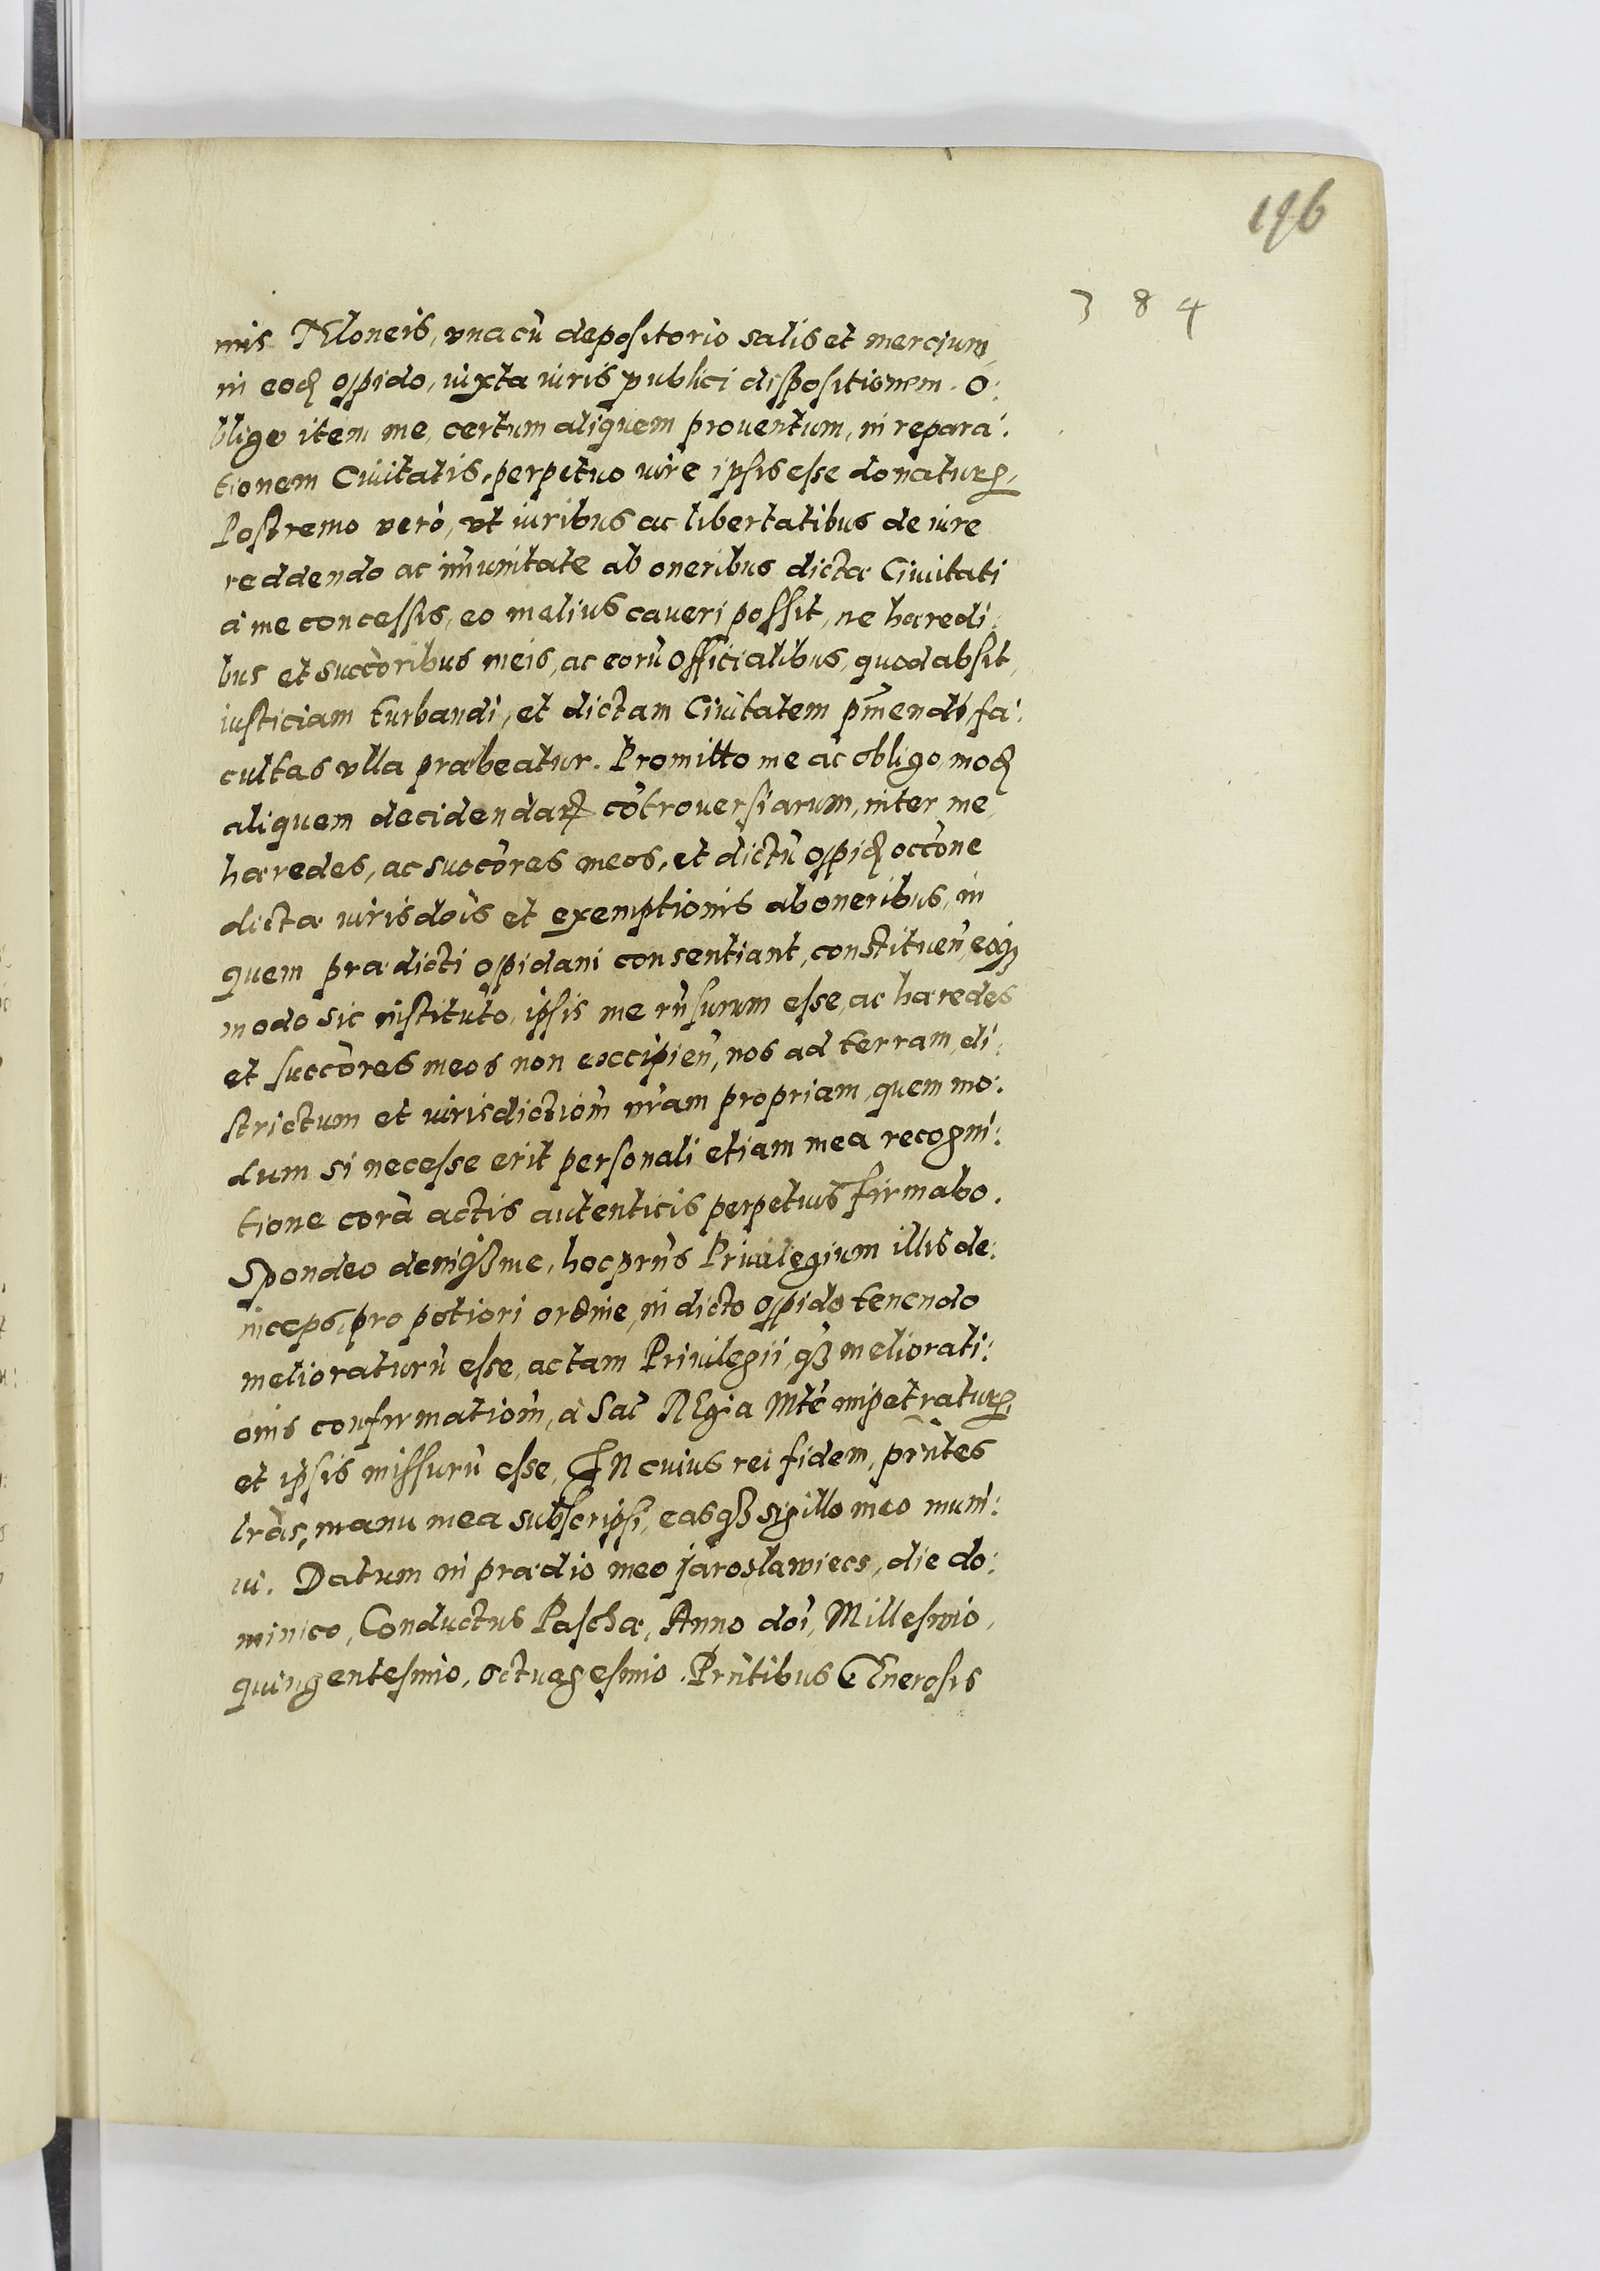 196
3 8 4
mis Teloneis, vna cũ depositorio salis et mercium,
in eod opido, iuxta iuris publici dispositionem. O:
bligo item me, certum aliquem prouentum, in repara:
tionem Ciuitatis, perpetuo iure ipsis esse donaturũ,
Postremo verò, vt iuribus ac libertatibus de iure
reddendo ac im̃unitate ab oneribus dictæ Ciuitati
à me concessis, eo melius caueri possit, ne hæredi:
bus et succòribus meis, ac eorũ officialibus, quod absit,
iusticiam turbandi, et dictam Ciuitatem p̃mendi fa:
cultas vlla præbeatur. Promitto me ac obligo, mod
aliquem decidendarꝝ cõtrouersiarum, inter me,
hæredes, ac succòres meos, et dictũ opid occõne
dictæ iurisdõis et exemptionis ab oneribus, in
quem prædicti opidani consentiant, constituen̄, eoqꝫ
modo sic instituto, ipsis me rñsurum esse, ac hæredes
et succòres meos non excipien̄, nos ad terram, di:
strictum et iurisdictiom̃ nr̃am propriam, quem mo:
dum si necesse erit personali etiam mea recogni:
tione corã actis autenticis perpetuis firmabo.
Spondeo deniqꝫ me, hoc prñs Priuilegium illis de:
inceps, pro potiori ordine, in dicto opido tenendo
melioraturũ esse, ac tam Priuilegii, qꝫ meliorati:
onis confirmatiom̃, à Sac̃ REgia Mtẽ impetraturũ,
et ipsis missurũ esse, IN cuius rei fidem, prñtes
lr̃as, manu mea subscripsi, easqꝫ sigillo meo muni:
ui. Datum in prædio meo jaroslawiecs, die do:
minico, Conductus Paschæ, Anno dõi, Millesimo,
quingentesimo, octuagesimo. Prñtibus GEnerosis